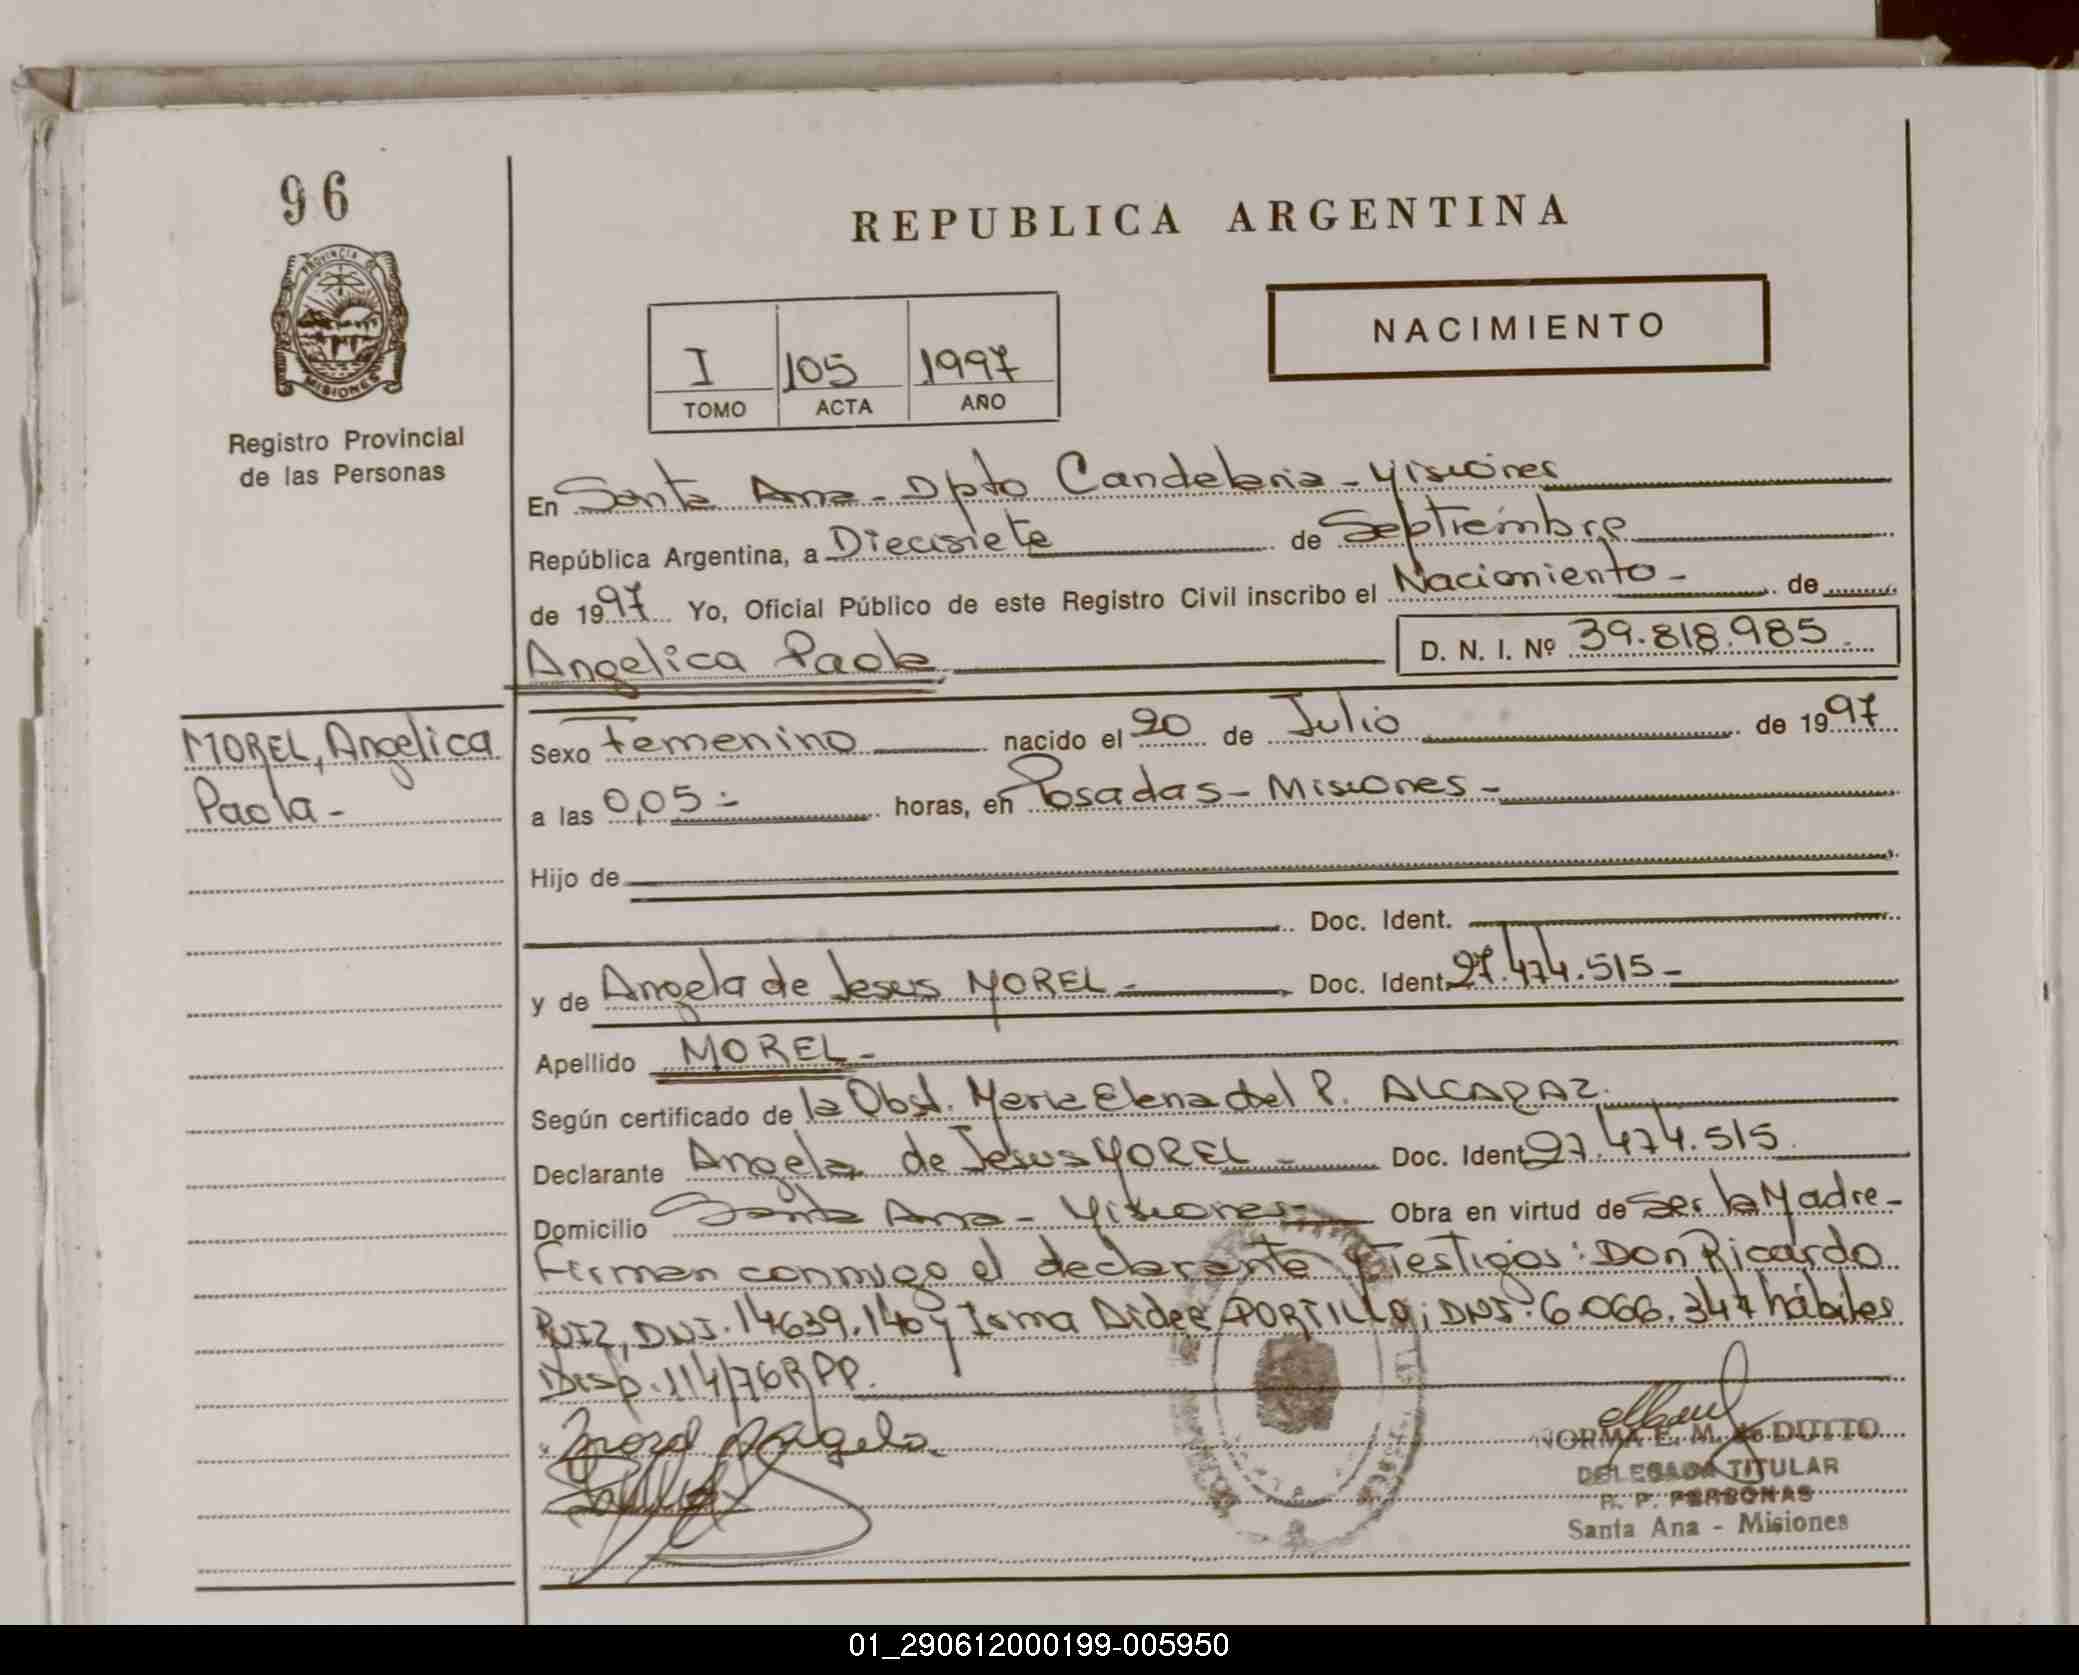 96
PROVINCIA DE
MISIONES
Registro Provincial
de las Personas
REPUBLICA ARGENTINA
NACIMIENTO
I 105 1997
TOMO ACTA AÑO
En Santa Ana - Dpto Candelaria - Misiones
República Argentina, a Diecisiete de Septiembre
de 1997 Yo, Oficial Público de este Registro Civil inscribo el Nacimiento - de
Angelica Paola D. N. I. Nº 39.818.985.
MOREL, Angelica
Paola -
Sexo Femenino nacido el 20 de Julio de 1997
a las 0,05 - horas, en Posadas - Misiones -
Hijo de
Doc. Ident.
y de Angela de Jesus MOREL - Doc. Ident. 27.474.515 -
Apellido MOREL -
Según certificado de la Obst. Maria Elena del P. ALCARAZ.
Declarante Angela de Jesus MOREL - Doc. Ident. 27.474.515.
Domicilio Santa Ana - Misiones - Obra en virtud de ser la Madre -
Firman conmigo el declarante y Testigos: Don Ricardo
RUIZ, DNI. 14639.140 y Irma Aidee PORTILLO; DNI. 6.066.347 hábiles
Disp. 114/76 RPP.
Morel Angela
NORMA E. M. DUTTO
DELEGADA TITULAR
R. P. PERSONAS
Santa Ana - Misiones
01_290612000199-005950